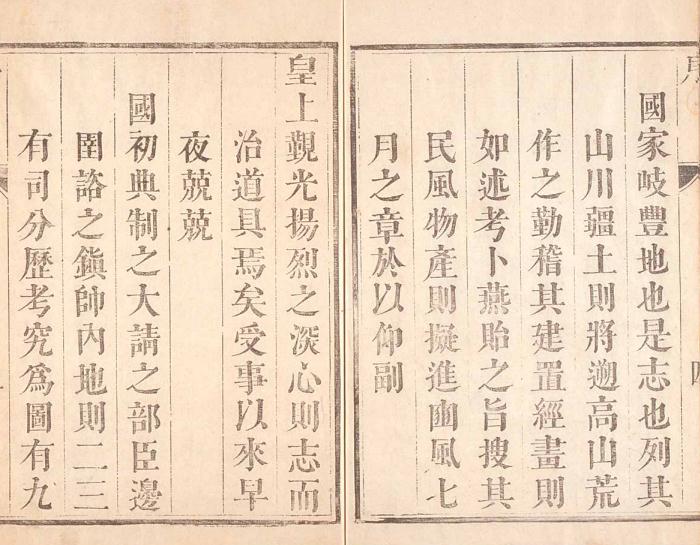 國家岐豐地也是志也列其
山川疆土則將遡高山荒
作之勤稽其建置經畫則
如述考卜燕貽之旨搜其
民風物產則擬進豳風七
月之章於以仰副
皇上覲光揚烈之深心則志而
治道具焉矣受事以來早
夜兢兢
國初典制之大請之部臣邊
圉諮之鎭帥內地則二三
有司分歷考究爲圖有九